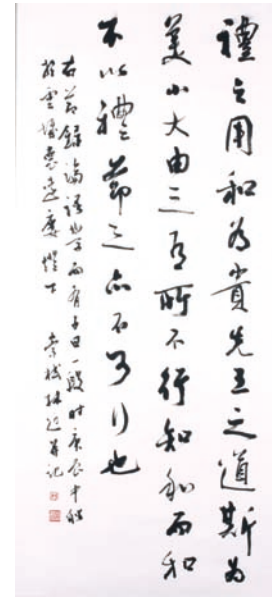 禮之用和為貴先王之道斯為
美小大由之有所不行知和而和
不以禮節之亦不可行也
右節錄論語學而有子曰一段時庚辰中秋
於雲